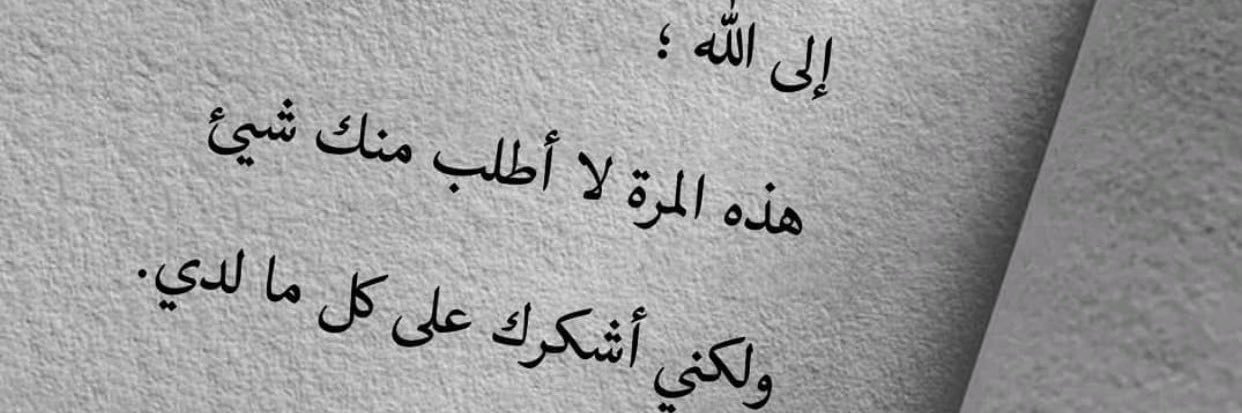 إلى الله ؛
هذه المرة لا أطلب منك شيئ
ولكني أشكرك على كل ما لدي.